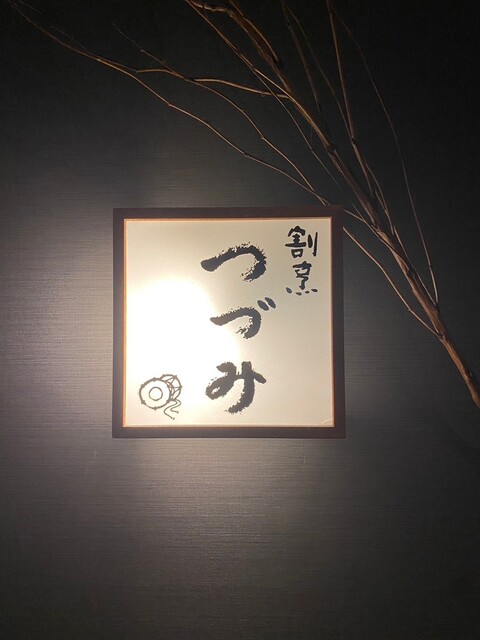 割烹
つづみ